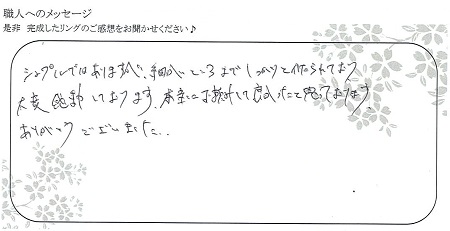 職人へのメッセージ
是非 完成したリングのご感想をお聞かせください♪
シンプルではありますが、細かいところまでしっかりと作られており
大変感動しております。本当にお願いして良かったと思っております。
ありがとうございました…